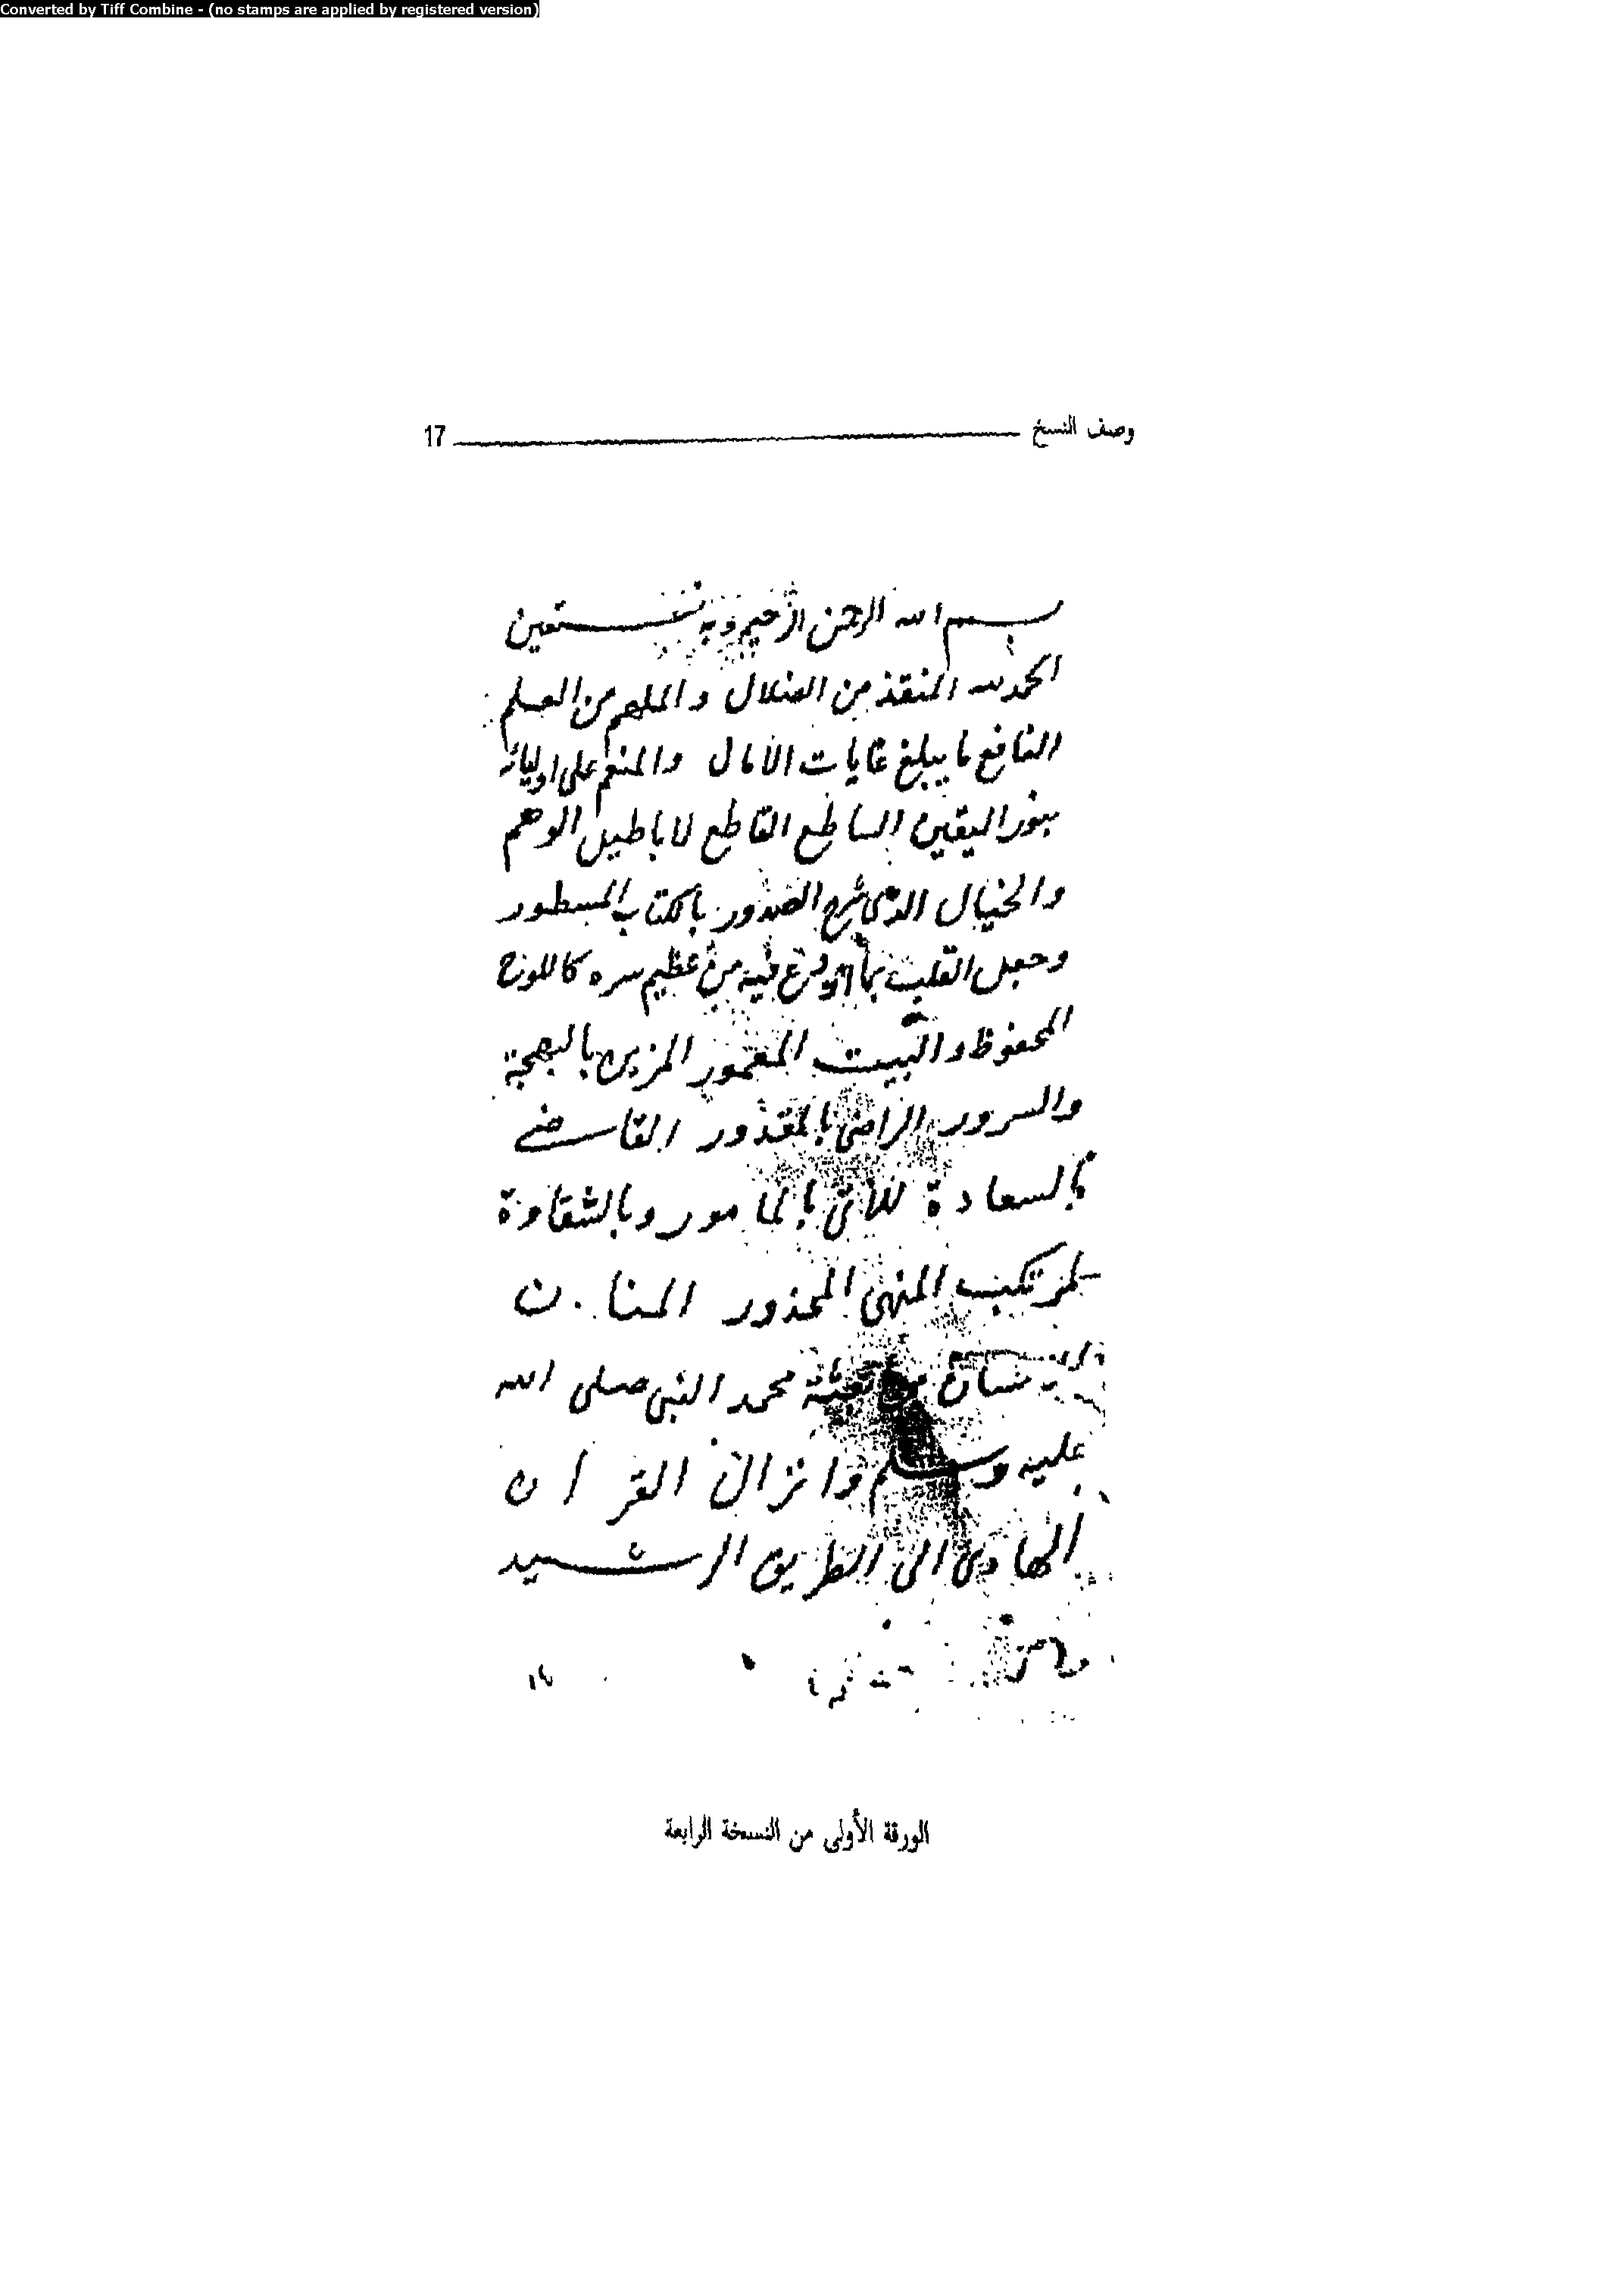 Converted by Tiff Combine - (no stamps are applied by registered version)
وصف النسخ 17
بسم الله الرحمن الرحيم وبه نستعين
الحمد لله المنقذ من الضلال والملهم من العلم
النافع ما يبلغ غايات الآمال والمنعم على اوليائه
بنور اليقين الساطع القاطع لاباطيل الوهم
والخيال الذي شرح الصدور بالكتاب المسطور
وجعل القلب بما اودع فيه من عظيم سره كاللوح
المحفوظ والبيت المعمور المزين بالبهجة
والسرور الراضى بالمقدور القاضي
بالسعادة للاتى بالمامور وبالشقاوة
لمرتكب المنهى المحذور المنان
محمد النبى صلى الله
عليه وسلم وانزال القرآن
الهادى الى الطريق الرشيد
الورقة الأولى من النسخة الرابعة